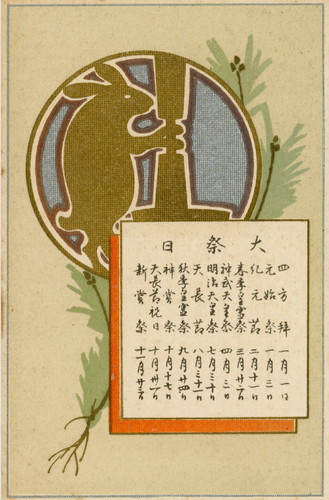 大祭日
四方拜 一月一日
元始祭 一月三日
紀元節 二月十一日
春季皇霊祭 三月廿二日
神武天皇祭 四月三日
明治天皇祭 七月三十日
天長節 八月三十一日
秋季皇霊祭 九月廿四日
神嘗祭 十月十七日
天長節祝日 十月卅一日
新嘗祭 十一月廿三日